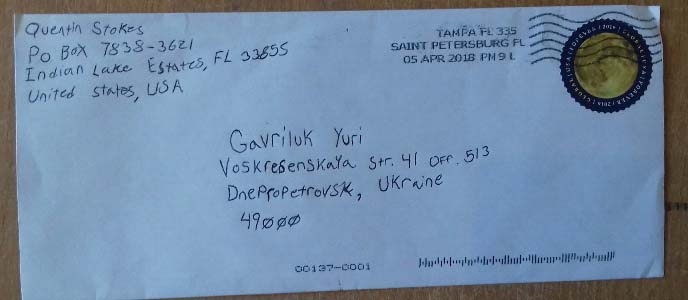 Quentin Stokes
PO Box 7838-3621
Indian Lake Estates, FL 33855
United States, USA
TAMPA FL 335
SAINT PETERSBURG FL
05 APR 2018 PM 9 L
Gavriluk Yuri
Voskresenskaya Str. 41 Off. 513
Dnepropetrovsk, Ukraine
49000
00137-0001